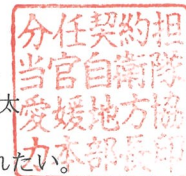 分任契約担
当官自衛隊
太
愛媛地方協
力本部長印
れたい。